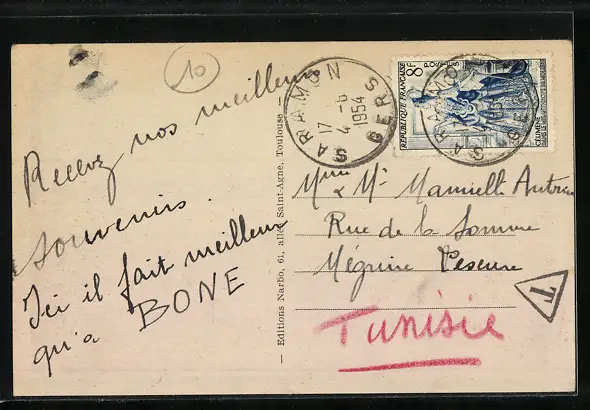 10
Recevez nos meilleurs
souvenirs.
Ici il fait meilleur
qu'a BONE
— Editions Narbo, 61, allée Saint-Agne, Toulouse —
SARAMON
17 - 6
4 1954
GERS
8F
POSTES
REPUBLIQUE FRANÇAISE
CELIMENE
SARAMON
GERS
Mme & Mr Manuelle
Rue de la Somme
Mégrine
Tunisie
T